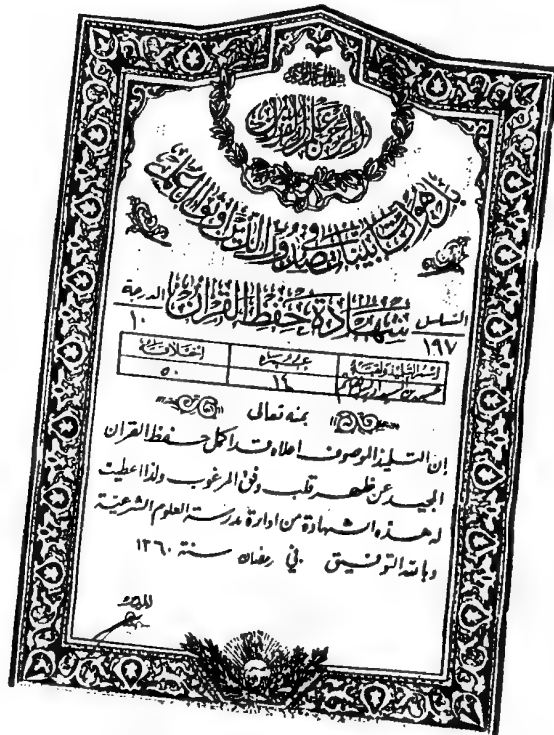 الرحمن علم القرآن
بل هو آيات بينات في صدور الذين أوتوا العلم
التسلسل شهادة حفظ القرآن الدرجة
١٩٧ ١٠
اسم التلميذ ولقبه عمره أخلاقه
١٤ ٥٠
بمنه تعالى
إن التلميذ الموصوف اعلاه قد اكمل حفظ القرآن
المجيد عن ظهر قلب وفق المرغوب ولذا اعطيت
له هذه الشهادة من ادارة مدرسة العلوم الشرعية
وبالله التوفيق في رمضان سنة ١٣٦٠
المدير